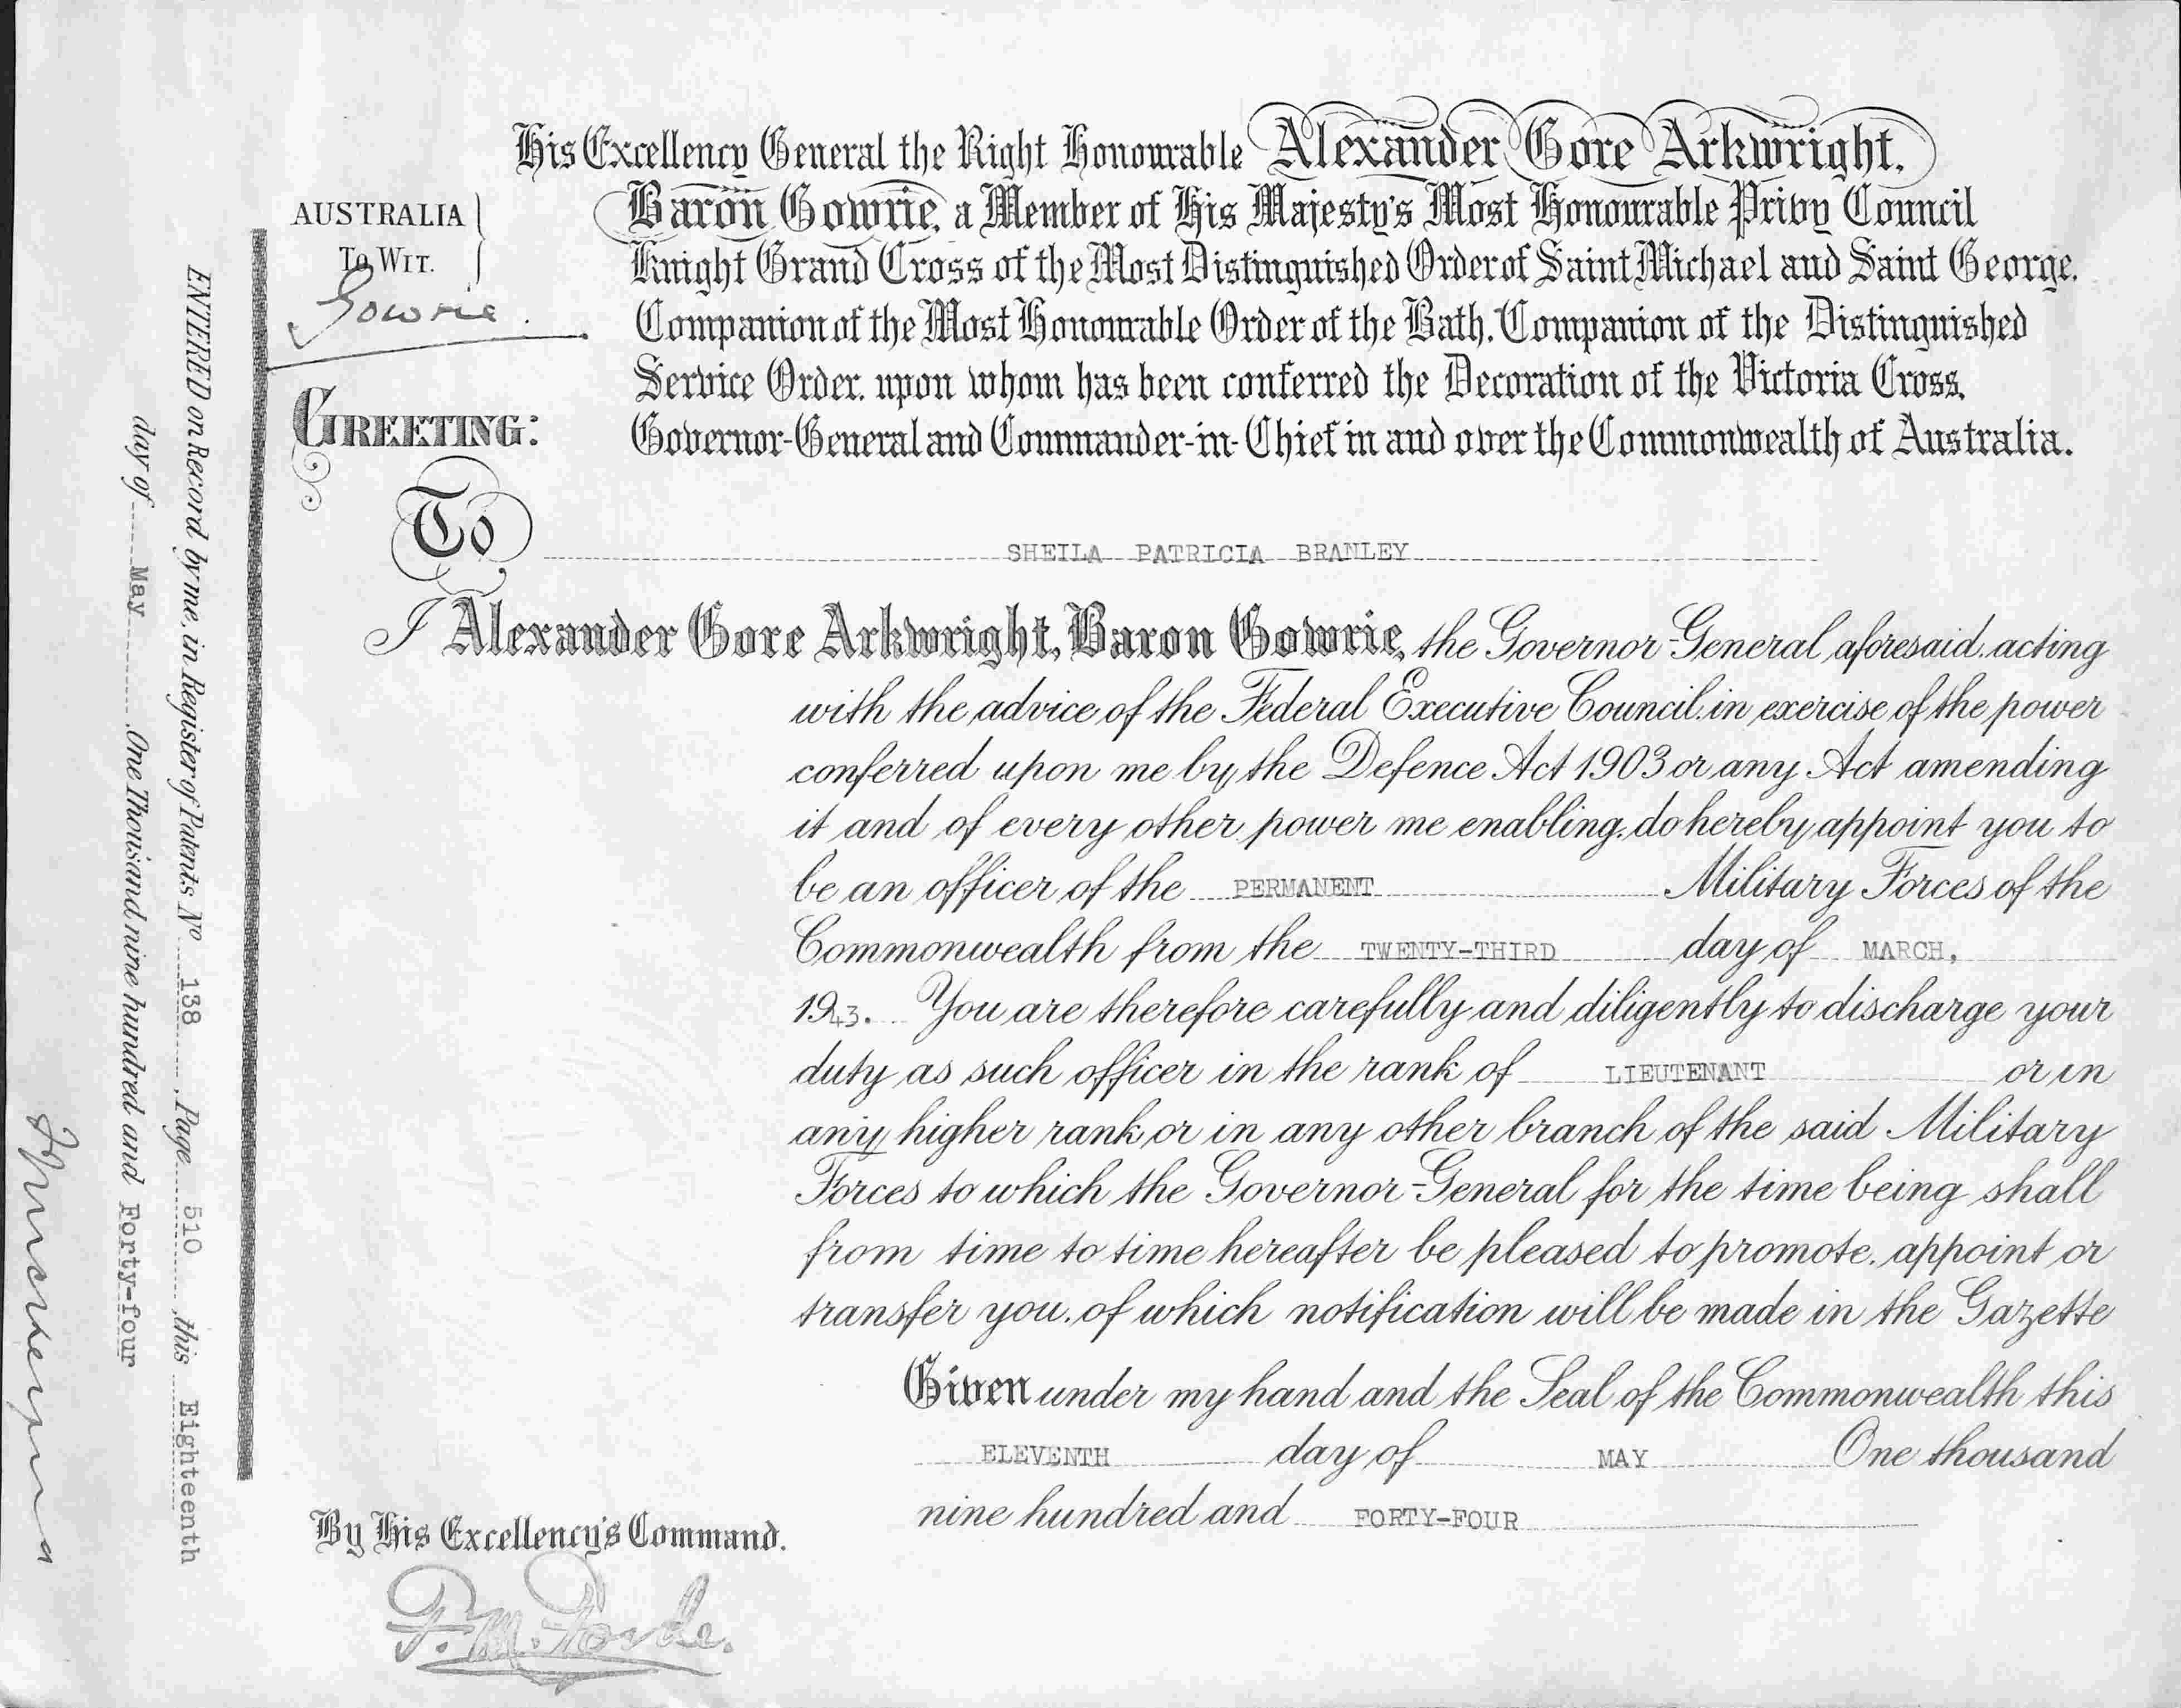 His Excellency General the Right Honourable Alexander Gore Arkwright,
Baron Gowrie, a Member of His Majesty's Most Honourable Privy Council
Knight Grand Cross of the Most Distinguished Order of Saint Michael and Saint George,
Companion of the Most Honourable Order of the Bath, Companion of the Distinguished
Service Order, upon whom has been conferred the Decoration of the Victoria Cross,
Governor-General and Commander-in-Chief in and over the Commonwealth of Australia.
AUSTRALIA
TO WIT.
Gowrie.
GREETING:
To SHEILA PATRICIA BRANLEY
I Alexander Gore Arkwright, Baron Gowrie, the Governor-General aforesaid, acting
with the advice of the Federal Executive Council, in exercise of the power
conferred upon me by the Defence Act 1903 or any Act amending
it and of every other power me enabling, do hereby appoint you to
be an officer of the PERMANENT Military Forces of the
Commonwealth from the TWENTY-THIRD day of MARCH,
1943. You are therefore carefully and diligently to discharge your
duty as such officer in the rank of LIEUTENANT or in
any higher rank or in any other branch of the said Military
Forces to which the Governor-General for the time being shall
from time to time hereafter be pleased to promote, appoint or
transfer you, of which notification will be made in the Gazette
Given under my hand and the Seal of the Commonwealth this
ELEVENTH day of MAY One thousand
nine hundred and FORTY-FOUR
By His Excellency's Command.
F. M. Forde.
ENTERED on Record by me, in Register of Patents No 138, Page 510, this Eighteenth
day of May, One Thousand nine hundred and Forty-four